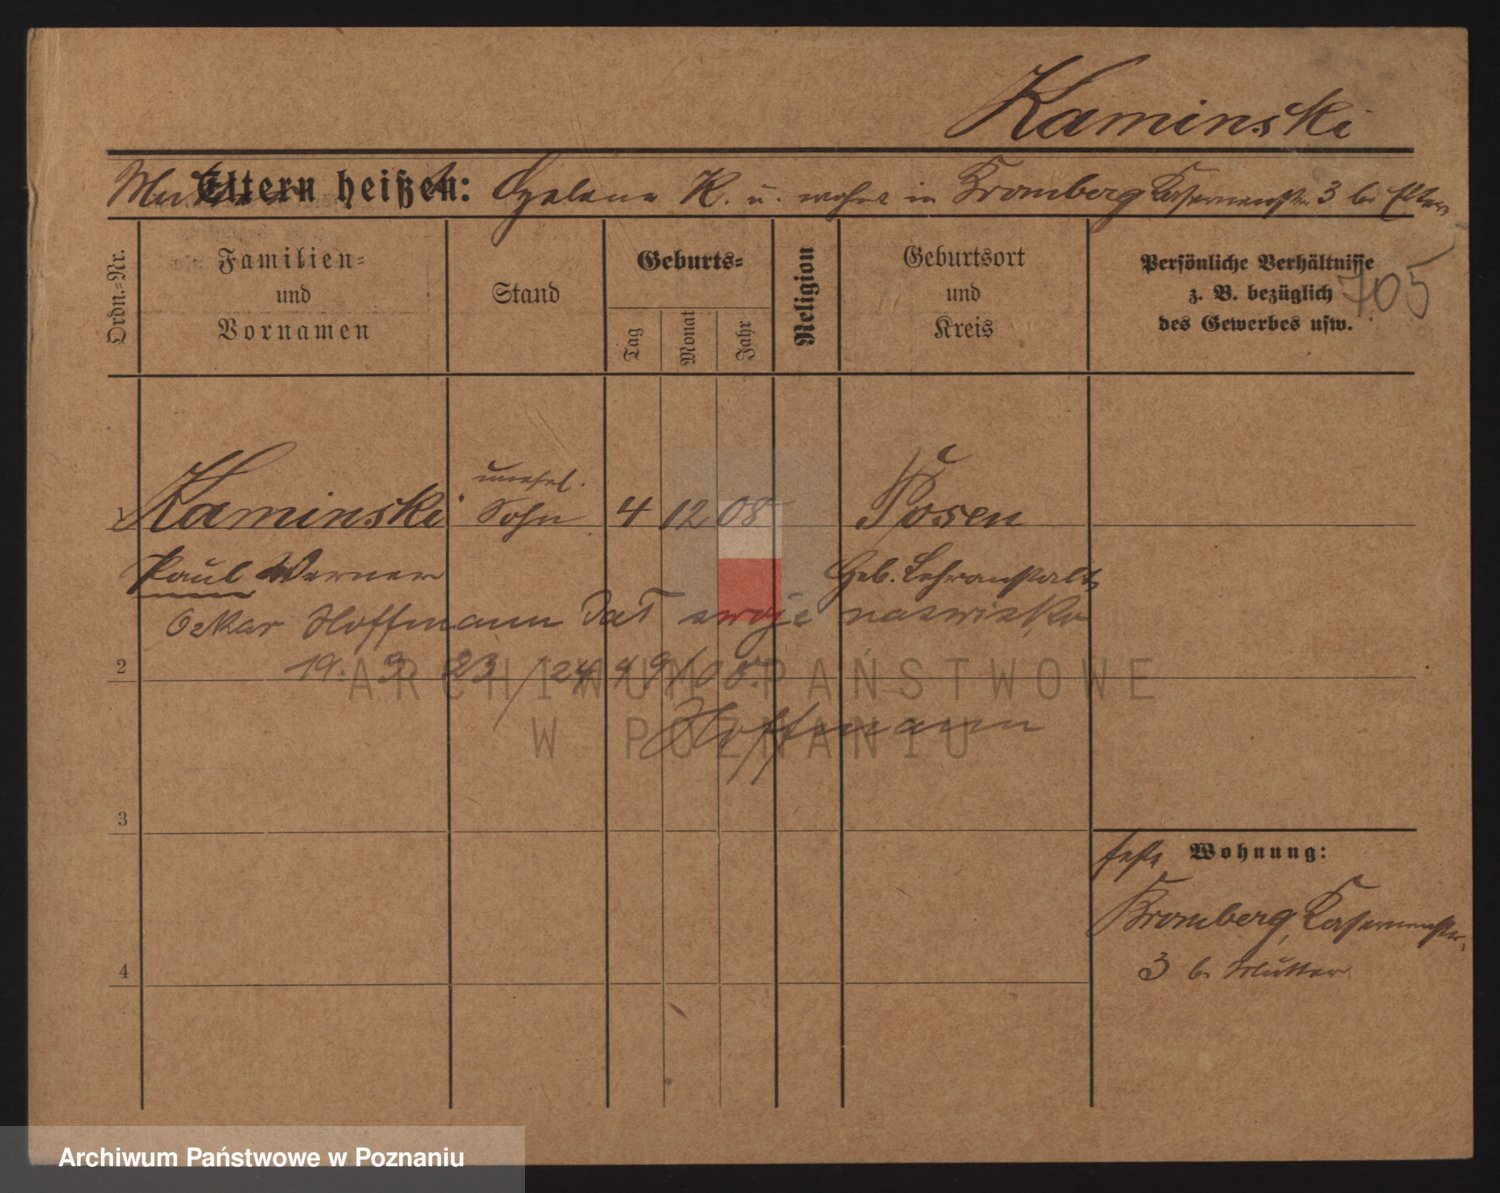 Kaminski
Eltern heißen: Helena K. u. wohnt in Bromberg Kasernenstr. 3 bei Eltern
Ordn.-Nr.
Familien-
und
Vornamen
Stand
Geburts-
Tag
Monat
Jahr
Religion
Geburtsort
und
Kreis
Persönliche Verhältnisse
z. B. bezüglich
des Gewerbes usw.
705
unehel.
1 Kaminski Sohn 4 12 08 Posen
Paul Werner Heb. Lehranstalt
Oskar Hoffmann dał swoje nazwisko
2 19. 3. 23
ARCHIWUM PAŃSTWOWE
W POZNANIU
Hoffmann
3
Wohnung:
Bromberg, Kasernenstr.
3 b. Mutter
4
Archiwum Państwowe w Poznaniu